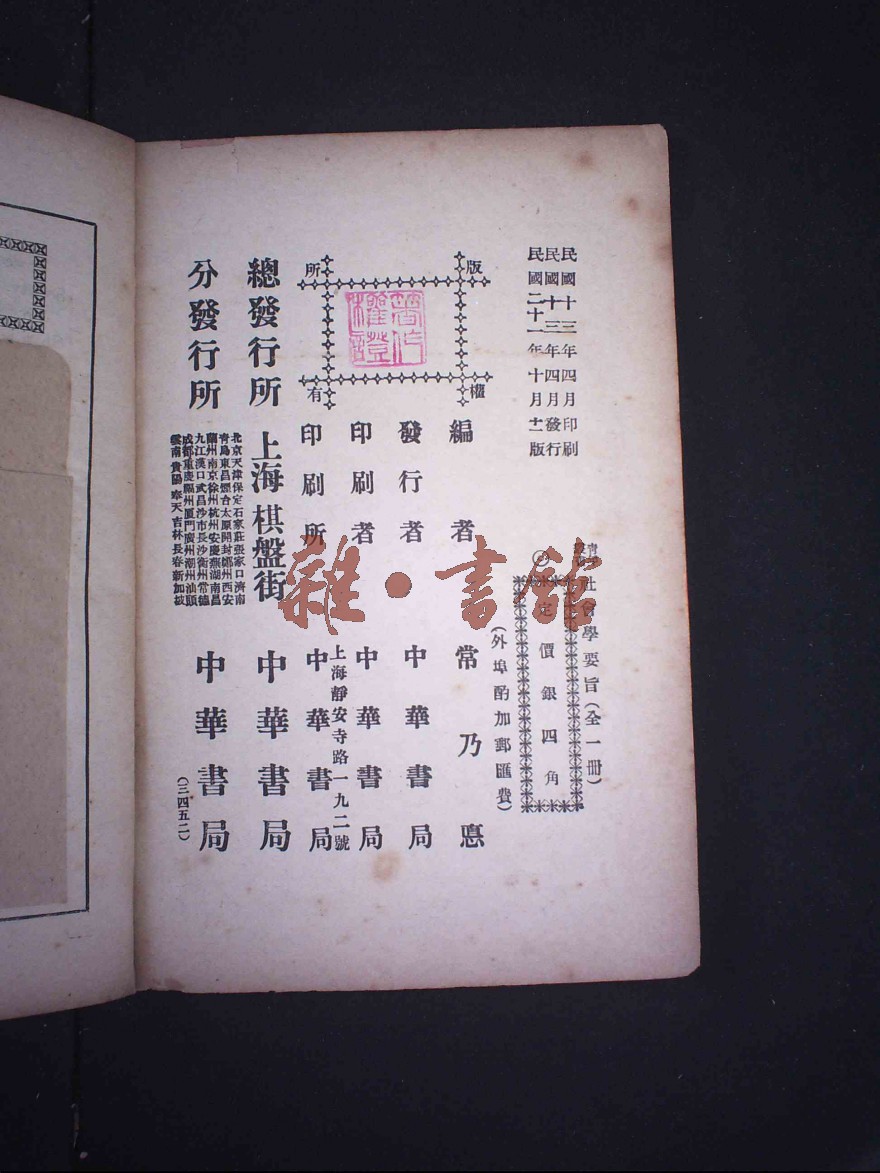 民國十三年四月印刷
民國十三年四月發行
民國二十一年十月十二版
社會學要旨(全一冊)
定價銀四角
(外埠酌加郵匯費)
版權所有
編者 常乃悳
發行者 中華書局
印刷者 中華書局
上海靜安寺路一九二號
印刷所 中華書局
總發行所 上海棋盤街 中華書局
分發行所 中華書局
北京天津保定石家莊張家口濟南
青島東昌煙台太原開封鄭州西安
蘭州南京徐州杭州安慶蕪湖南昌
九江漢口武昌沙市長沙衡州常德
成都重慶福州厦門廣州潮州汕頭
雲南貴陽奉天吉林長春新加坡
(三四五二)
雜·書館